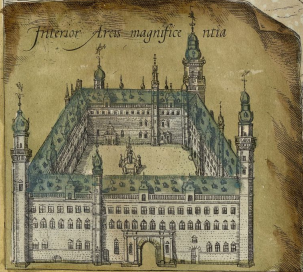 Interior Arcis magnifice ntia